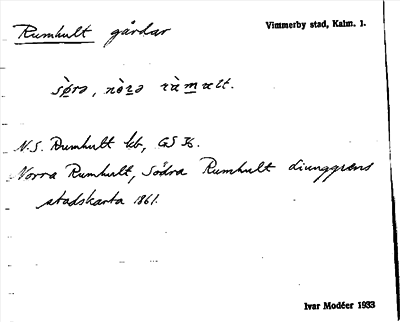 Rumhult gårdar
Vimmerby stad, Kalm. 1.
sø̀rə, nòrə rùmələt.
N.S. Rumhult hb, GSK.
Norra Rumhult, Södra Rumhult Ljunggrens
stadskarta 1861.
Ivar Modéer 1933